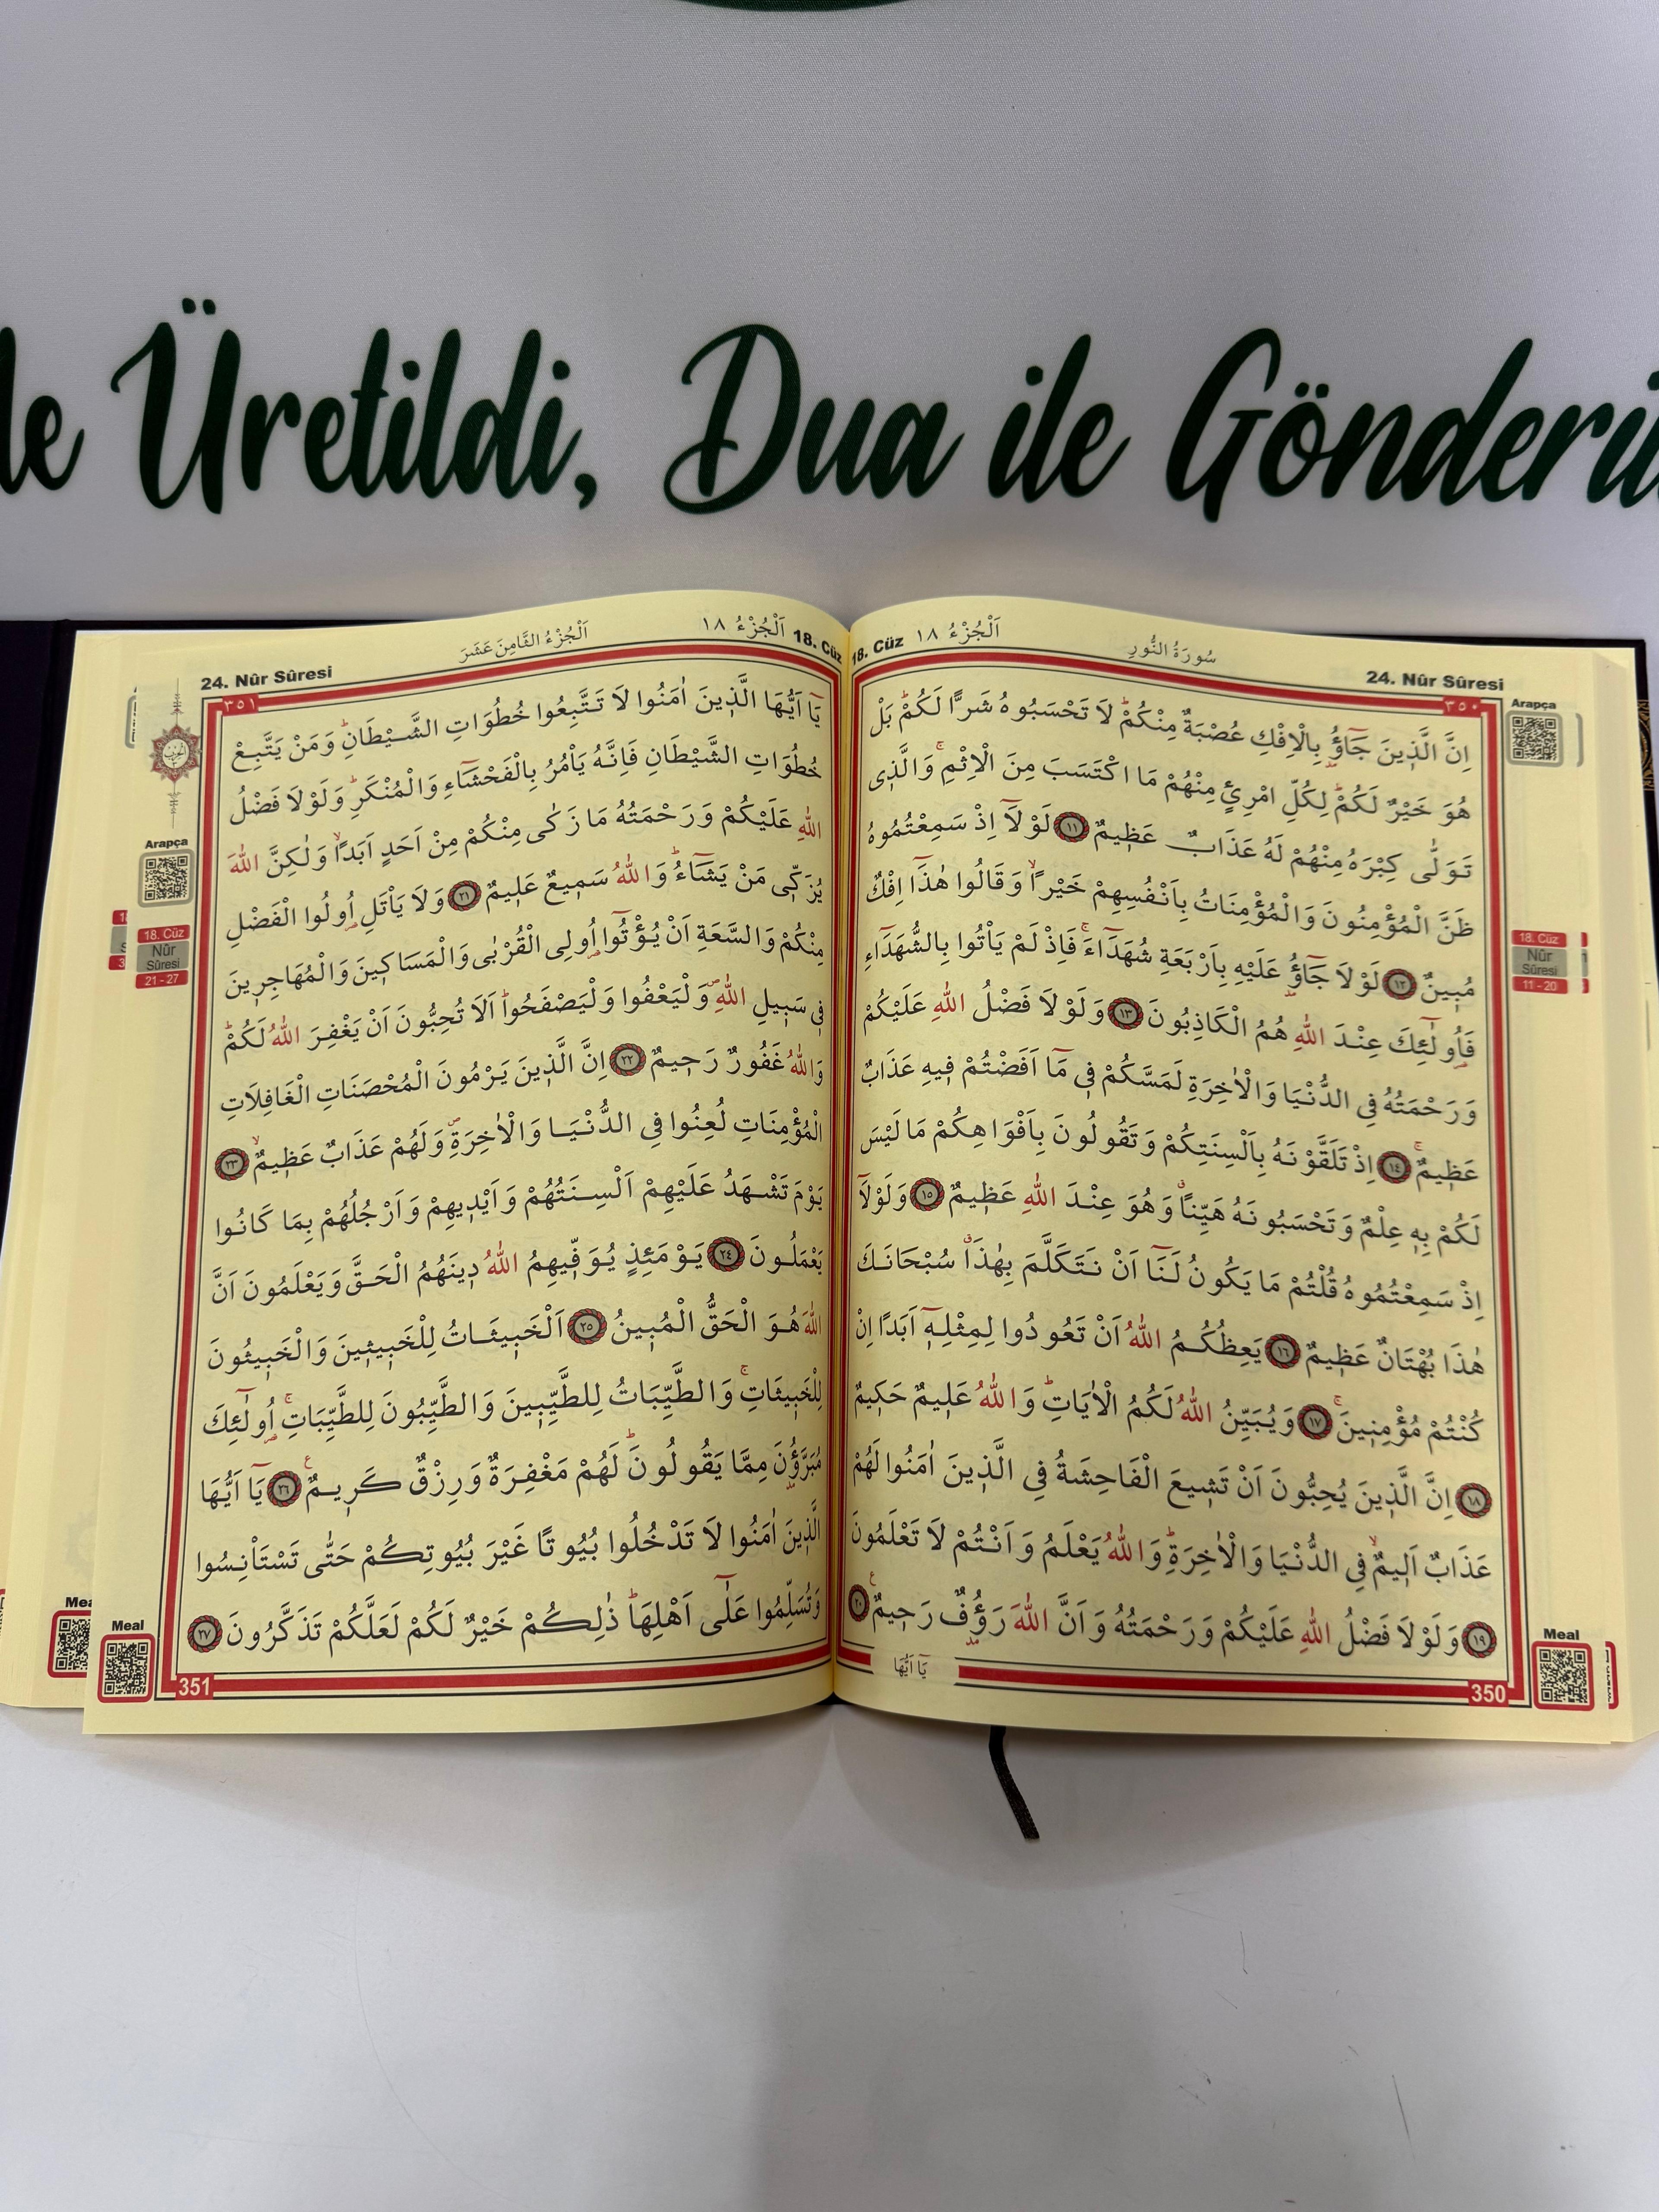 le Üretildi, Dua ile Gönderil
24. Nûr Sûresi
سُورَةُ النُّورِ
اَلْجُزْءُ ١٨
18. Cüz
٣٥٠
Arapça
اِنَّ الَّذ۪ينَ جَٓاؤُ۫ بِالْاِفْكِ عُصْبَةٌ مِنْكُمْۜ لَا تَحْسَبُوهُ شَرًّا لَكُمْۜ بَلْ
هُوَ خَيْرٌ لَكُمْۜ لِكُلِّ امْرِئٍ مِنْهُمْ مَا اكْتَسَبَ مِنَ الْاِثْمِۚ وَالَّذ۪ى
تَوَلّٰى كِبْرَهُ مِنْهُمْ لَهُ عَذَابٌ عَظ۪يمٌ ﴿١١﴾ لَوْلَٓا اِذْ سَمِعْتُمُوهُ
ظَنَّ الْمُؤْمِنُونَ وَالْمُؤْمِنَاتُ بِاَنْفُسِهِمْ خَيْرًاۙ وَقَالُوا هٰذَٓا اِفْكٌ
مُب۪ينٌ ﴿١٢﴾ لَوْلَا جَٓاؤُ۫ عَلَيْهِ بِاَرْبَعَةِ شُهَدَٓاءَۚ فَاِذْ لَمْ يَأْتُوا بِالشُّهَدَٓاءِ
فَاُو۬لٰٓئِكَ عِنْدَ اللّٰهِ هُمُ الْكَاذِبُونَ ﴿١٣﴾ وَلَوْلَا فَضْلُ اللّٰهِ عَلَيْكُمْ
وَرَحْمَتُهُ فِى الدُّنْيَا وَالْاٰخِرَةِ لَمَسَّكُمْ ف۪ى مَٓا اَفَضْتُمْ ف۪يهِ عَذَابٌ
عَظ۪يمٌۚ ﴿١٤﴾ اِذْ تَلَقَّوْنَهُ بِاَلْسِنَتِكُمْ وَتَقُولُونَ بِاَفْوَاهِكُمْ مَا لَيْسَ
لَكُمْ بِه۪ عِلْمٌ وَتَحْسَبُونَهُ هَيِّنًاۗ وَهُوَ عِنْدَ اللّٰهِ عَظ۪يمٌ ﴿١٥﴾ وَلَوْلَٓا
اِذْ سَمِعْتُمُوهُ قُلْتُمْ مَا يَكُونُ لَنَٓا اَنْ نَتَكَلَّمَ بِهٰذَاۗ سُبْحَانَكَ
هٰذَا بُهْتَانٌ عَظ۪يمٌ ﴿١٦﴾ يَعِظُكُمُ اللّٰهُ اَنْ تَعُودُوا لِمِثْلِه۪ٓ اَبَدًا اِنْ
كُنْتُمْ مُؤْمِن۪ينَۚ ﴿١٧﴾ وَيُبَيِّنُ اللّٰهُ لَكُمُ الْاٰيَاتِۜ وَاللّٰهُ عَل۪يمٌ حَك۪يمٌ
﴿١٨﴾ اِنَّ الَّذ۪ينَ يُحِبُّونَ اَنْ تَش۪يعَ الْفَاحِشَةُ فِى الَّذ۪ينَ اٰمَنُوا لَهُمْ
عَذَابٌ اَل۪يمٌۙ فِى الدُّنْيَا وَالْاٰخِرَةِۜ وَاللّٰهُ يَعْلَمُ وَاَنْتُمْ لَا تَعْلَمُونَ
﴿١٩﴾ وَلَوْلَا فَضْلُ اللّٰهِ عَلَيْكُمْ وَرَحْمَتُهُ وَاَنَّ اللّٰهَ رَؤُ۫فٌ رَح۪يمٌ ﴿٢٠﴾
يَٓا اَيُّهَا
18. Cüz
Nûr
Sûresi
11 - 20
Meal
350
اَلْجُزْءُ ١٨
18. Cüz
اَلْجُزْءُ الثَّامِنَ عَشَرَ
24. Nûr Sûresi
٣٥١
يَٓا اَيُّهَا الَّذ۪ينَ اٰمَنُوا لَا تَتَّبِعُوا خُطُوَاتِ الشَّيْطَانِۜ وَمَنْ يَتَّبِعْ
خُطُوَاتِ الشَّيْطَانِ فَاِنَّهُ يَأْمُرُ بِالْفَحْشَٓاءِ وَالْمُنْكَرِۜ وَلَوْلَا فَضْلُ
اللّٰهِ عَلَيْكُمْ وَرَحْمَتُهُ مَا زَكٰى مِنْكُمْ مِنْ اَحَدٍ اَبَدًاۙ وَلٰكِنَّ اللّٰهَ
يُزَكّ۪ى مَنْ يَشَٓاءُۜ وَاللّٰهُ سَم۪يعٌ عَل۪يمٌ ﴿٢١﴾ وَلَا يَأْتَلِ اُو۬لُوا الْفَضْلِ
مِنْكُمْ وَالسَّعَةِ اَنْ يُؤْتُٓوا اُو۬لِى الْقُرْبٰى وَالْمَسَاك۪ينَ وَالْمُهَاجِر۪ينَ
ف۪ى سَب۪يلِ اللّٰهِۖ وَلْيَعْفُوا وَلْيَصْفَحُواۜ اَلَا تُحِبُّونَ اَنْ يَغْفِرَ اللّٰهُ لَكُمْۜ
وَاللّٰهُ غَفُورٌ رَح۪يمٌ ﴿٢٢﴾ اِنَّ الَّذ۪ينَ يَرْمُونَ الْمُحْصَنَاتِ الْغَافِلَاتِ
الْمُؤْمِنَاتِ لُعِنُوا فِى الدُّنْيَا وَالْاٰخِرَةِۖ وَلَهُمْ عَذَابٌ عَظ۪يمٌۙ ﴿٢٣﴾
يَوْمَ تَشْهَدُ عَلَيْهِمْ اَلْسِنَتُهُمْ وَاَيْد۪يهِمْ وَاَرْجُلُهُمْ بِمَا كَانُوا
يَعْمَلُونَ ﴿٢٤﴾ يَوْمَئِذٍ يُوَفّ۪يهِمُ اللّٰهُ د۪ينَهُمُ الْحَقَّ وَيَعْلَمُونَ اَنَّ
اللّٰهَ هُوَ الْحَقُّ الْمُب۪ينُ ﴿٢٥﴾ اَلْخَب۪يثَاتُ لِلْخَب۪يث۪ينَ وَالْخَب۪يثُونَ
لِلْخَب۪يثَاتِۚ وَالطَّيِّبَاتُ لِلطَّيِّب۪ينَ وَالطَّيِّبُونَ لِلطَّيِّبَاتِۚ اُو۬لٰٓئِكَ
مُبَرَّؤُ۫نَ مِمَّا يَقُولُونَۜ لَهُمْ مَغْفِرَةٌ وَرِزْقٌ كَر۪يمٌ ﴿٢٦﴾ يَٓا اَيُّهَا
الَّذ۪ينَ اٰمَنُوا لَا تَدْخُلُوا بُيُوتًا غَيْرَ بُيُوتِكُمْ حَتّٰى تَسْتَأْنِسُوا
وَتُسَلِّمُوا عَلٰٓى اَهْلِهَاۜ ذٰلِكُمْ خَيْرٌ لَكُمْ لَعَلَّكُمْ تَذَكَّرُونَ ﴿٢٧﴾
Arapça
18. Cüz
Nûr
Sûresi
21 - 27
Meal
351